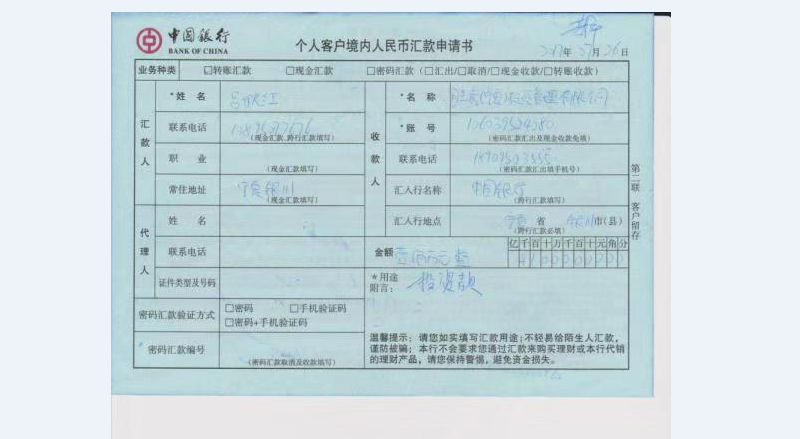 中国银行
BANK OF CHINA
个人客户境内人民币汇款申请书
年 月26日
业务种类 ☑转账汇款 □现金汇款 □密码汇款（□汇出/□取消/□现金收款/□转账收款）
汇款人
*姓 名
联系电话
(现金汇款、跨行汇款填写)
职 业
(现金汇款填写)
常住地址 宁夏银川
(现金汇款填写)
收款人
*名 称 管理有限公司
*账 号 106039524280
(密码汇款汇出及现金收款免填)
联系电话
(密码汇款汇出填手机号)
汇入行名称 中国银行
(跨行汇款填写)
汇入行地点 宁夏省 银川市(县)
(跨行汇款必填)
代理人
姓 名
联系电话
证件类型及号码
金额 壹佰万元整
亿千百十万千百十元角分
*用途
附言： 投资款
密码汇款验证方式 □密码 □手机验证码
□密码+手机验证码
密码汇款编号
(密码汇款取消及收款填写)
温馨提示：请您如实填写汇款用途；不轻易给陌生人汇款，
谨防被骗；本行不会要求您通过汇款来购买理财或本行代销
的理财产品，请您保持警惕，避免资金损失。
第二联 客户留存